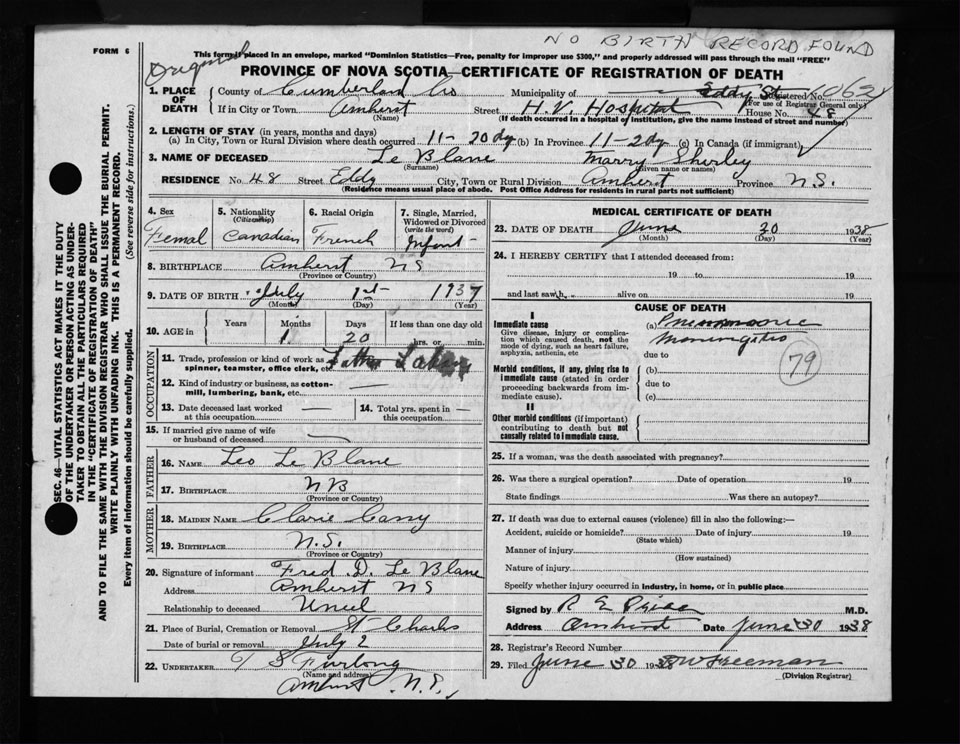 NO BIRTH RECORD FOUND
FORM 6
Original
This form if placed in an envelope, marked "Dominion Statistics—Free, penalty for improper use $300," and properly addressed will pass through the mail "FREE"
PROVINCE OF NOVA SCOTIA—CERTIFICATE OF REGISTRATION OF DEATH
1. PLACE OF DEATH
County of Cumberland Co Municipality of Eddy St Registered No. 062
(For use of Registrar General only)
If in City or Town Amherst Street H.V. Hospital House No. 48
(Name) (If death occurred in a hospital or institution, give the name instead of street and number)
2. LENGTH OF STAY (in years, months and days)
(a) In City, Town or Rural Division where death occurred 11-20dy (b) In Province 11-2dy (c) In Canada (if immigrant)
3. NAME OF DECEASED Le Blanc Marry Shirley
(Surname) (Given name or names)
RESIDENCE No. 48 Street Eddy City, Town or Rural Division Amherst Province N.S.
(Residence means usual place of abode. Post Office Address for residents in rural parts not sufficient)
4. Sex
Femal
5. Nationality
(Citizenship)
Canadian
6. Racial Origin
French
7. Single, Married, Widowed or Divorced
(write the word)
Infant
8. BIRTHPLACE Amherst NS
(Province or Country)
9. DATE OF BIRTH July 1st 1937
(Month) (Day) (Year)
10. AGE in
Years Months Days If less than one day old
1 20 hrs. or min.
OCCUPATION
11. Trade, profession or kind of work as spinner, teamster, office clerk, etc.
12. Kind of industry or business, as cotton-mill, lumbering, bank, etc. —
13. Date deceased last worked at this occupation —
14. Total yrs. spent in this occupation —
15. If married give name of wife or husband of deceased —
FATHER
16. Name Leo Le Blanc
17. Birthplace NB
(Province or Country)
MOTHER
18. Maiden Name Clarie Casey
19. Birthplace N.S.
(Province or Country)
20. Signature of informant Fred. D. Le Blanc
Address Amherst NS
Relationship to deceased Uncel
21. Place of Burial, Cremation or Removal St Charles
Date of burial or removal July 2
22. Undertaker Furlong
(Name and address)
Amherst N.S.
MEDICAL CERTIFICATE OF DEATH
23. DATE OF DEATH June 20 1938
(Month) (Day) (Year)
24. I HEREBY CERTIFY that I attended deceased from:
19 to 19
and last saw h alive on 19
CAUSE OF DEATH
I
Immediate cause
Give disease, injury or complication which caused death, not the mode of dying, such as heart failure, asphyxia, asthenia, etc
(a)
due to
79
Morbid conditions, if any, giving rise to immediate cause (stated in order proceeding backwards from immediate cause).
(b)
due to
(c)
II
Other morbid conditions (if important) contributing to death but not causally related to immediate cause.
25. If a woman, was the death associated with pregnancy?
26. Was there a surgical operation? Date of operation 19
State findings Was there an autopsy?
27. If death was due to external causes (violence) fill in also the following:—
Accident, suicide or homicide? Date of injury 19
(State which)
Manner of injury
(How sustained)
Nature of injury
Specify whether injury occurred in industry, in home, or in public place
Signed by R E Price M.D.
Address Amherst Date June 30 1938
28. Registrar's Record Number
29. Filed June 30 1938 W Freeman
(Division Registrar)
SEC. 46—VITAL STATISTICS ACT MAKES IT THE DUTY
OF THE UNDERTAKER OR PERSON ACTING AS UNDER-
TAKER TO OBTAIN ALL THE PARTICULARS REQUIRED
IN THE "CERTIFICATE OF REGISTRATION OF DEATH"
AND TO FILE THE SAME WITH THE DIVISION REGISTRAR WHO SHALL ISSUE THE BURIAL PERMIT.
WRITE PLAINLY WITH UNFADING INK. THIS IS A PERMANENT RECORD.
Every item of information should be carefully supplied. (See reverse side for instructions.)